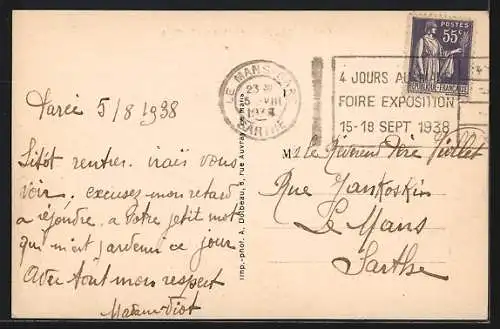 POSTES
55c
REPUBLIQUE FRANÇAISE
LE MANS GARE
23
5 VIII
SARTHE
4 JOURS AU MANS
FOIRE EXPOSITION
15-18 SEPT 1938
5/8 1938
Sitôt rentrés irais vous
voir. excusez mon retard
a réjondre. a Votre jetit mot
qui m'est ce jour
Avec tout mon respect
Imp.-phot. A. Dolbeau, 8, rue Auvray, Le Mans
M. le Révérend Père
Rue
Le Mans
Sarthe